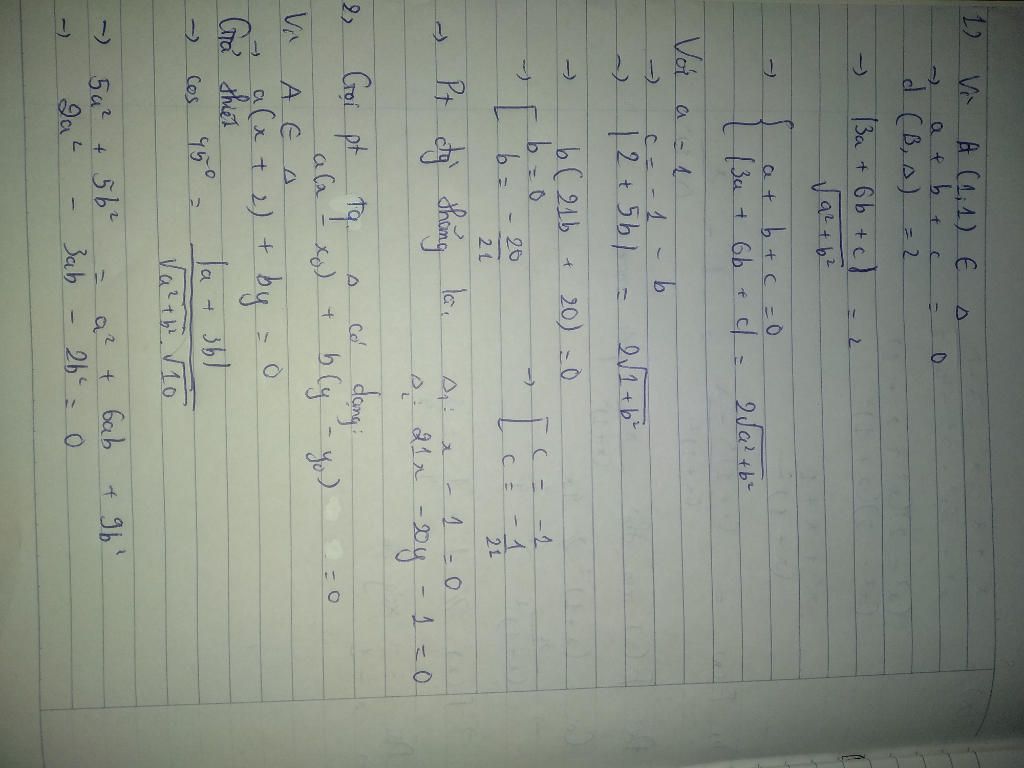 1, Vì A(1,1) ∈ Δ
→ a + b + c = 0
d(B,Δ) = 2
→ |3a + 6b + c| / √(a² + b²) = 2
→ { a + b + c = 0
{ |3a + 6b + c| = 2√(a² + b²)
Với a = 1
→ c = -1 - b
→ |2 + 5b| = 2√(1 + b²)
→ b(21b + 20) = 0
→ [ b = 0 → [ c = -1
[ b = -20/21 [ c = -1/21
→ Pt đg thẳng là: Δ₁: x - 1 = 0
Δ₂: 21x - 20y - 1 = 0
2, Gọi pt TQ Δ có dạng:
a(x - x₀) + b(y - y₀) = 0
Vì A ∈ Δ
→ a(x + 2) + by = 0
Giả thiết
→ cos 45° = |a + 3b| / √(a² + b²) . √10
→ 5a² + 5b² = a² + 6ab + 9b²
→ 2a² - 3ab - 2b² = 0